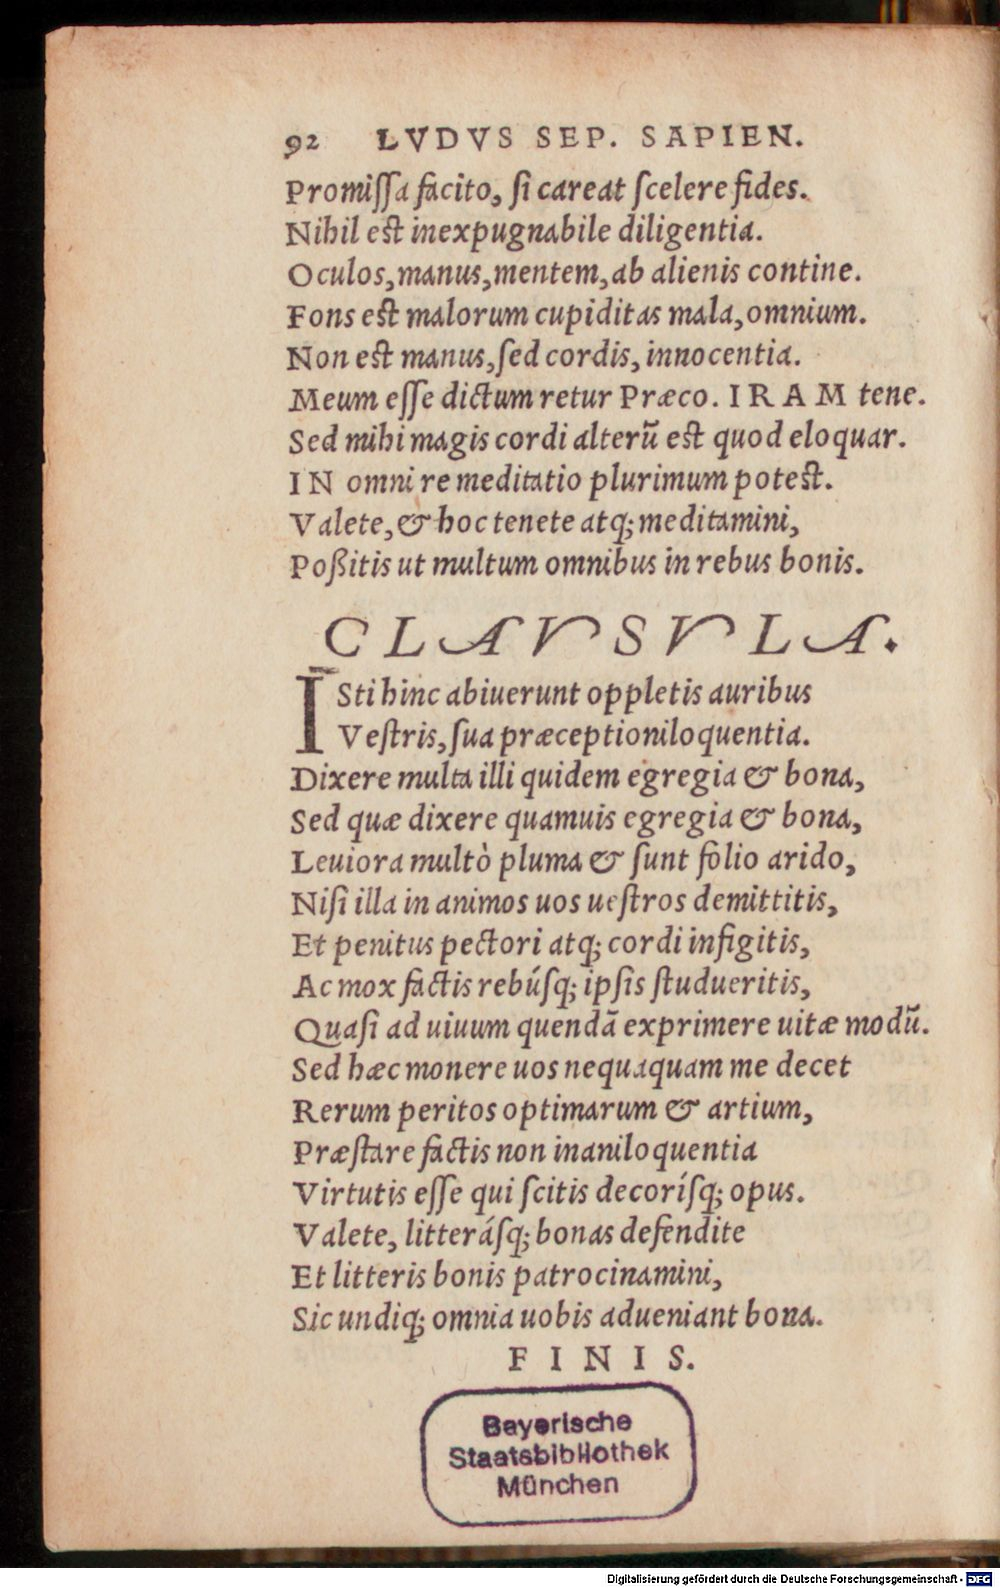 92 LVDVS SEP. SAPIEN.
Promiſſa facito, ſi careat ſcelere fides.
Nihil est inexpugnabile diligentia.
Oculos, manus, mentem, ab alienis contine.
Fons est malorum cupiditas mala, omnium.
Non est manus, ſed cordis, innocentia.
Meum eſſe dictum retur Præco. IRAM tene.
Sed mihi magis cordi alterũ est quod eloquar.
IN omni re meditatio plurimum potest.
Valete, & hoc tenete atq; meditamini,
Poßitis ut multum omnibus in rebus bonis.
CLAVSVLA.
ISti hinc abiuerunt oppletis auribus
Veſtris, ſua præceptioniloquentia.
Dixere multa illi quidem egregia & bona,
Sed quæ dixere quamuis egregia & bona,
Leuiora multò pluma & ſunt folio arido,
Niſi illa in animos uos ueſtros demittitis,
Et penitus pectori atq; cordi infigitis,
Ac mox factis rebúſq; ipſis ſtudueritis,
Quaſi ad uiuum quendã exprimere uitæ modũ.
Sed hæc monere uos nequaquam me decet
Rerum peritos optimarum & artium,
Præſtare factis non inaniloquentia
Virtutis eſſe qui ſcitis decoríſq; opus.
Valete, litteráſq; bonas defendite
Et litteris bonis patrocinamini,
Sic undiq; omnia uobis adueniant bona.
FINIS.
Bayerische
Staatsbibliothek
München
Digitalisierung gefördert durch die Deutsche Forschungsgemeinschaft - DFG